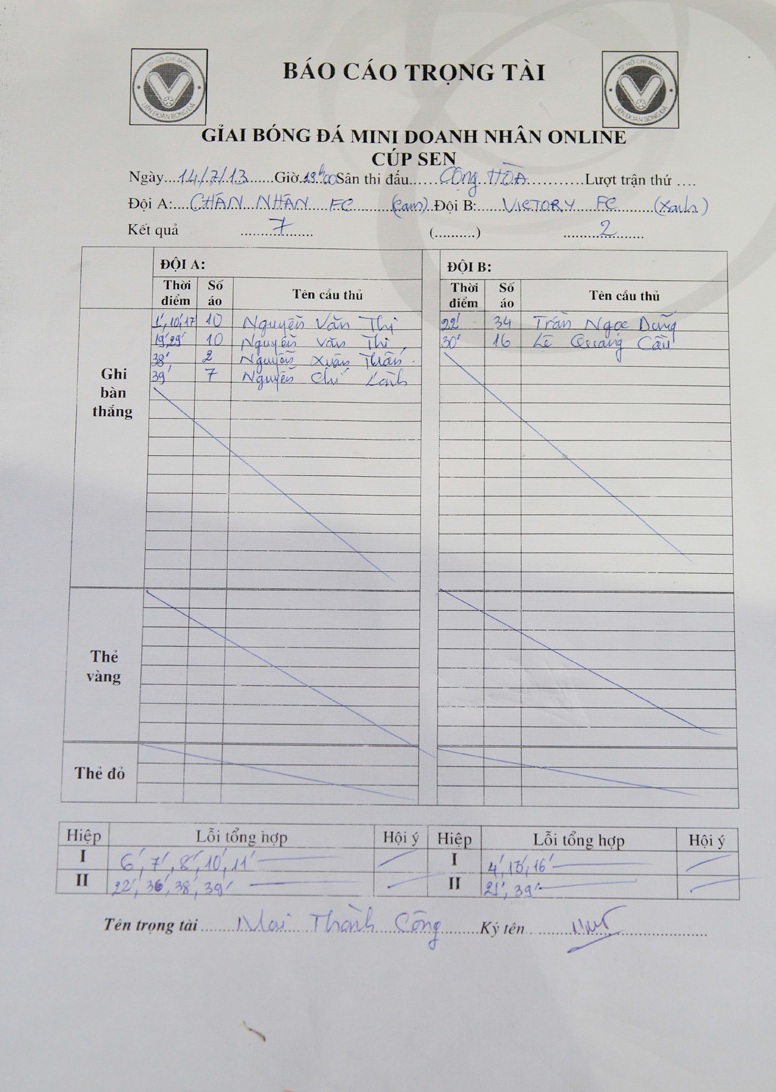 BÁO CÁO TRỌNG TÀI
TP HỒ CHÍ MINH
LIÊN ĐOÀN BÓNG ĐÁ
TP HỒ CHÍ MINH
LIÊN ĐOÀN BÓNG ĐÁ
GIẢI BÓNG ĐÁ MINI DOANH NHÂN ONLINE
CÚP SEN
Ngày...14/7/13......Giờ.........Sân thi đấu.....CỘNG HÒA...........Lượt trận thứ ....
Đội A:...CHÂN NHÂN FC.....(Cam).Đội B:....VICTORY FC.....(Xanh)
Kết quả ......7...... (..........) ......2......
ĐỘI A: ĐỘI B:
Thời điểm Số áo Tên cầu thủ Thời điểm Số áo Tên cầu thủ
Ghi bàn thắng
1', 10', 17' 10 Nguyễn Văn Thi 22' 34 Trần Ngọc Dũng
19', 29' 10 Nguyễn Văn Thi 30' 16 Lê Quang Cầu
38' 2 Nguyễn Xuân
39' 7 Nguyễn Chí Lành
Thẻ vàng
Thẻ đỏ
Hiệp Lỗi tổng hợp Hội ý Hiệp Lỗi tổng hợp Hội ý
I 6', 7', 8', 10', 11' I 4', 13', 16'
II 22', 36', 38', 39' II 21', 39'
Tên trọng tài......Mai Thành Công......Ký tên